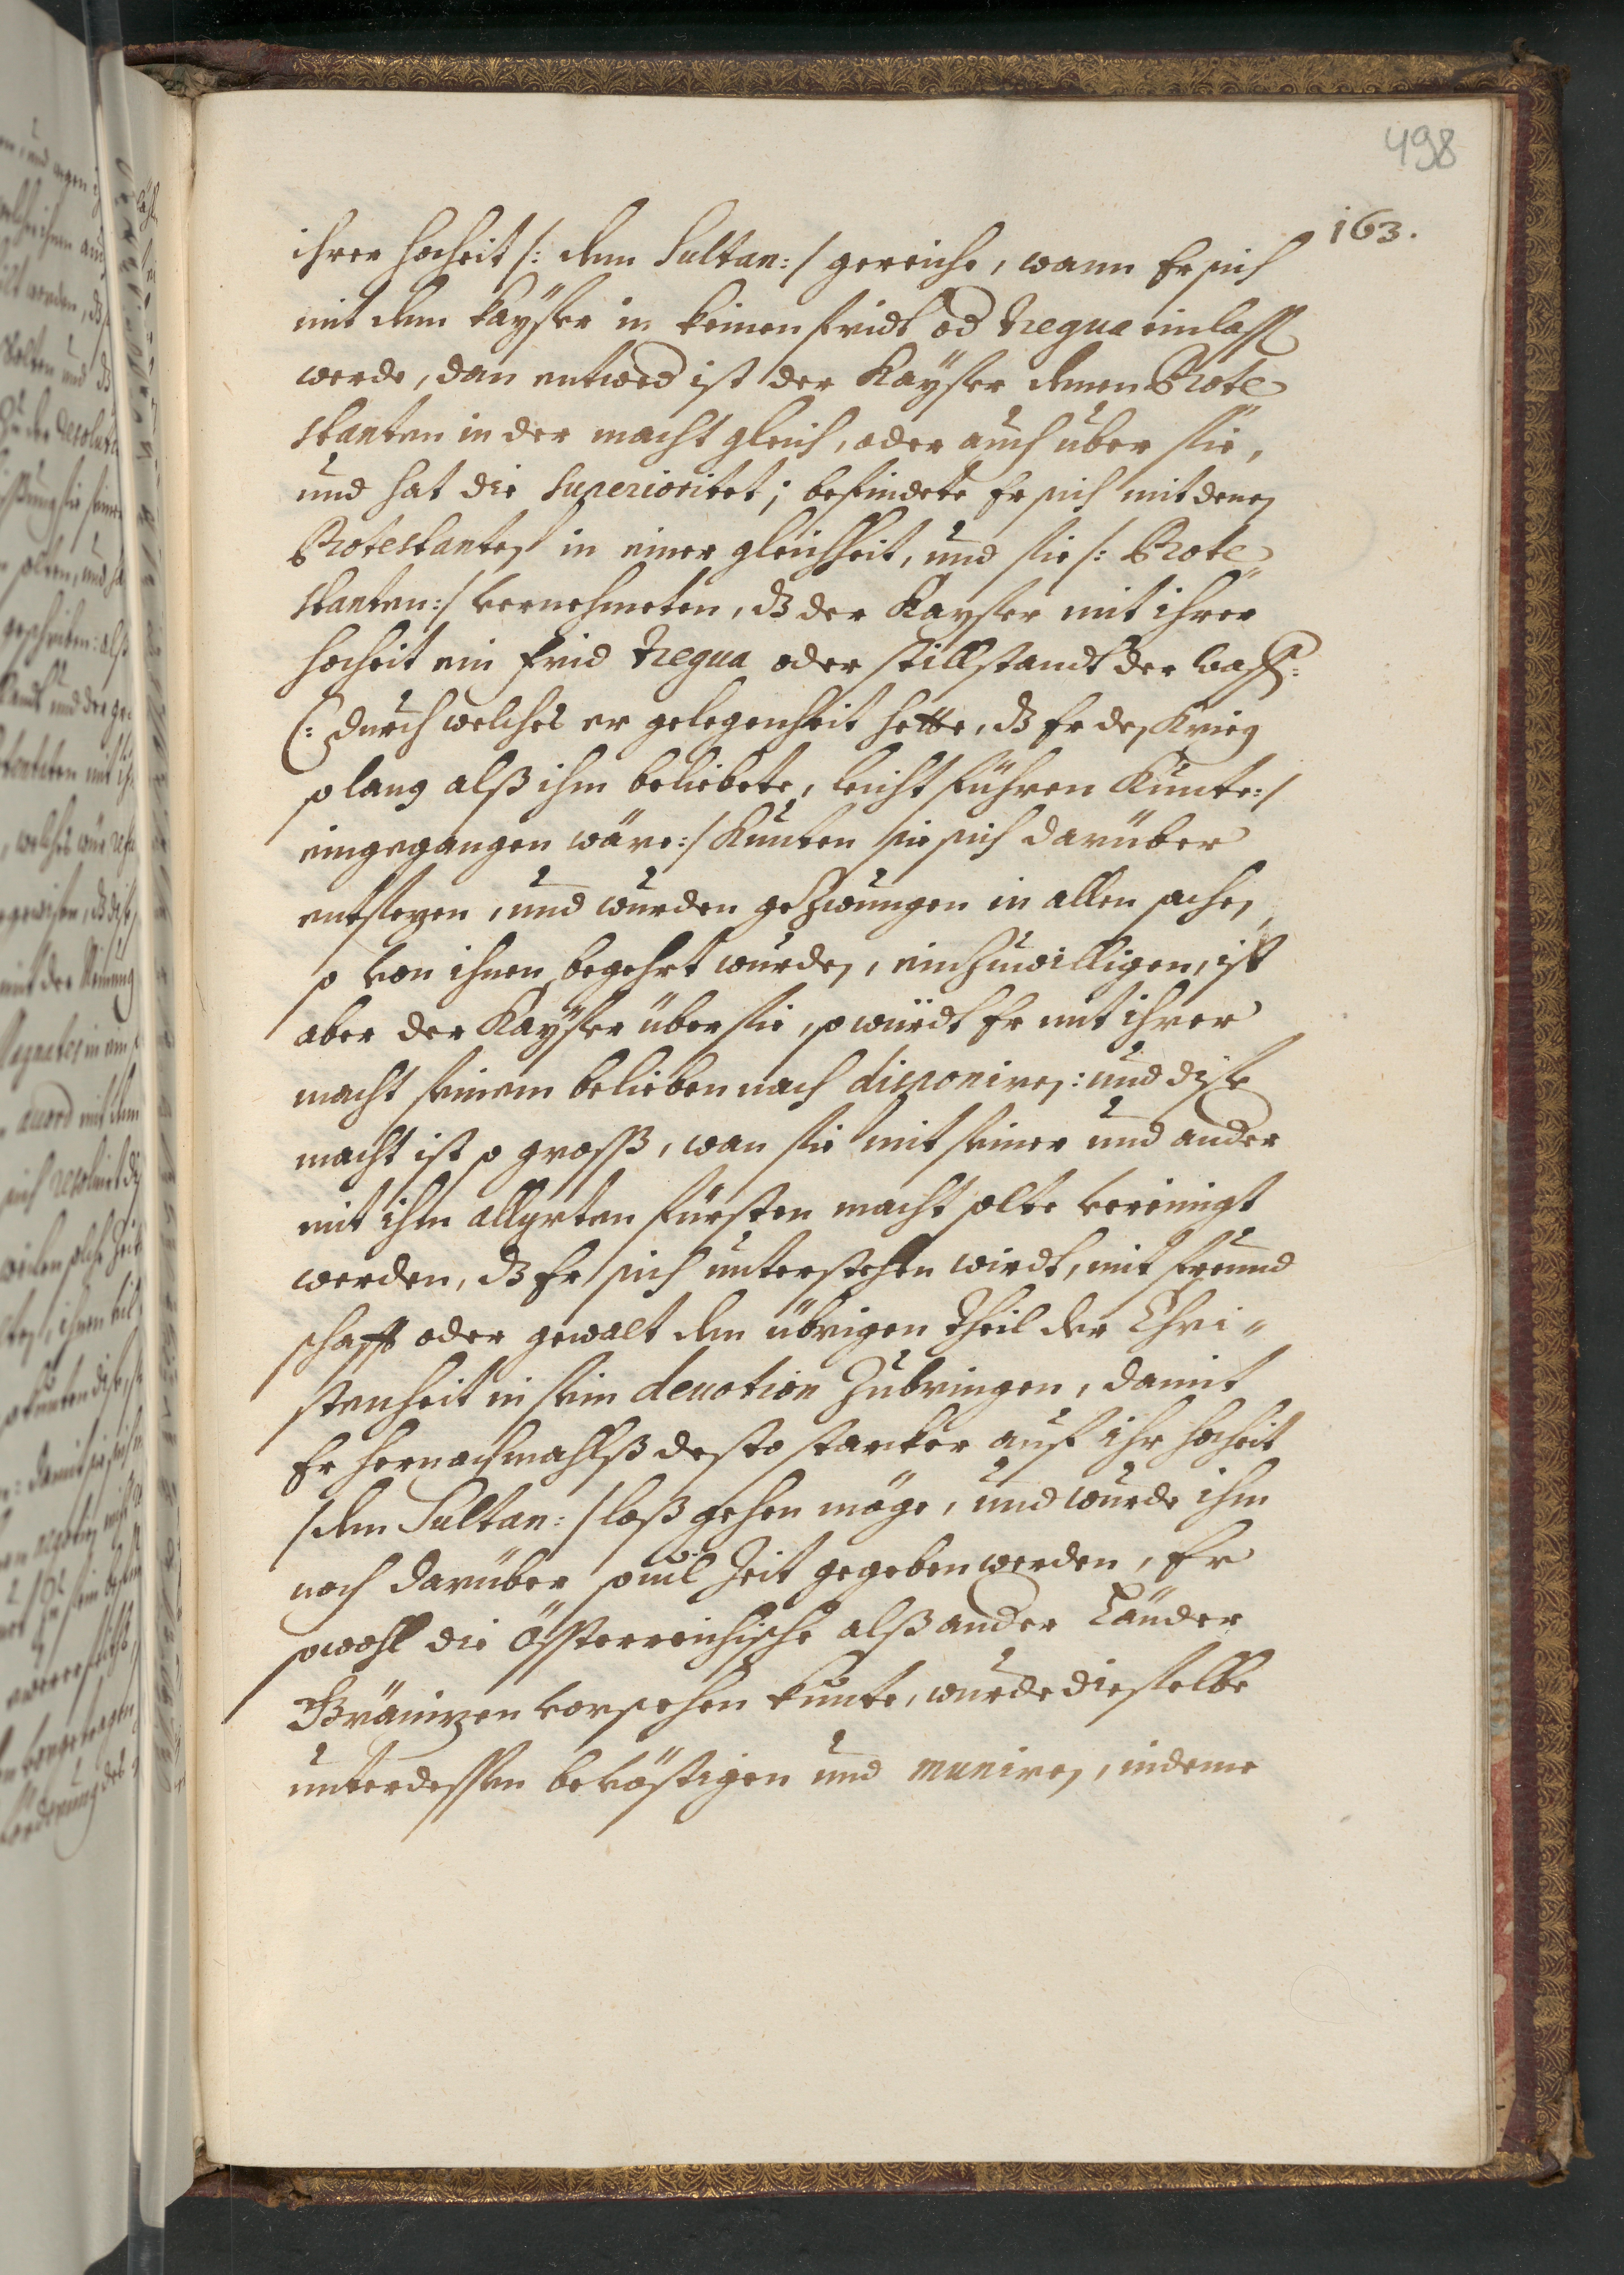 498
163.
ihrer hocheit /: dem Sultan:/ gereiche, wann Er sich
mit dem kaÿser in keinen fridt od tregua einlass
werde, dan entwed ist der Kaÿser denen Prote
stanten in der macht gleich, oder auch über sie,
und hat die Superioritet; befindete Er sich mit denen
Protestanten in einer gleichheit, und sie /: Prote
stanten:/ vernehmeten, dz der Kayser mit ihrer
hocheit ein frid tregua oder stillstandt der waff:
(: durch welches er gelegenheit hette, dz Er den Krieg
so lang alß ihm beliebete, leicht führen Kunte:/
eingegangen wäre:/ Kunten sie sich darüber
entsezen, und wurden gezwungen in allen sachen,
so von ihnen begehrt wurden, einzuwilligen, ist
aber der Kaÿser über sie, so würdt Er mit ihrer
macht seinem belieben nach disponiren: und dise
macht ist so gross, wan sie mit seiner und ander
mit ihm allyrten fürsten macht solte vereinigt
werden, dz Er sich unterstehen wirdt, mit freund
schafft oder gewalt den übrigen theil der Chri"
stenheit in sein deuotion zubringen, damit
Er hernachmahlß desto starker auf ihr hocheit
/dem Sultan:/ loß gehen möge, und wurde ihm
noch darüber souil Zeit gegeben werden, Er
sowohl die Össterreichische alß ander Länder
Gränizen vorsehen kunte, wurde dieselbe
unterdessen bevöstigen und muniren, indeme